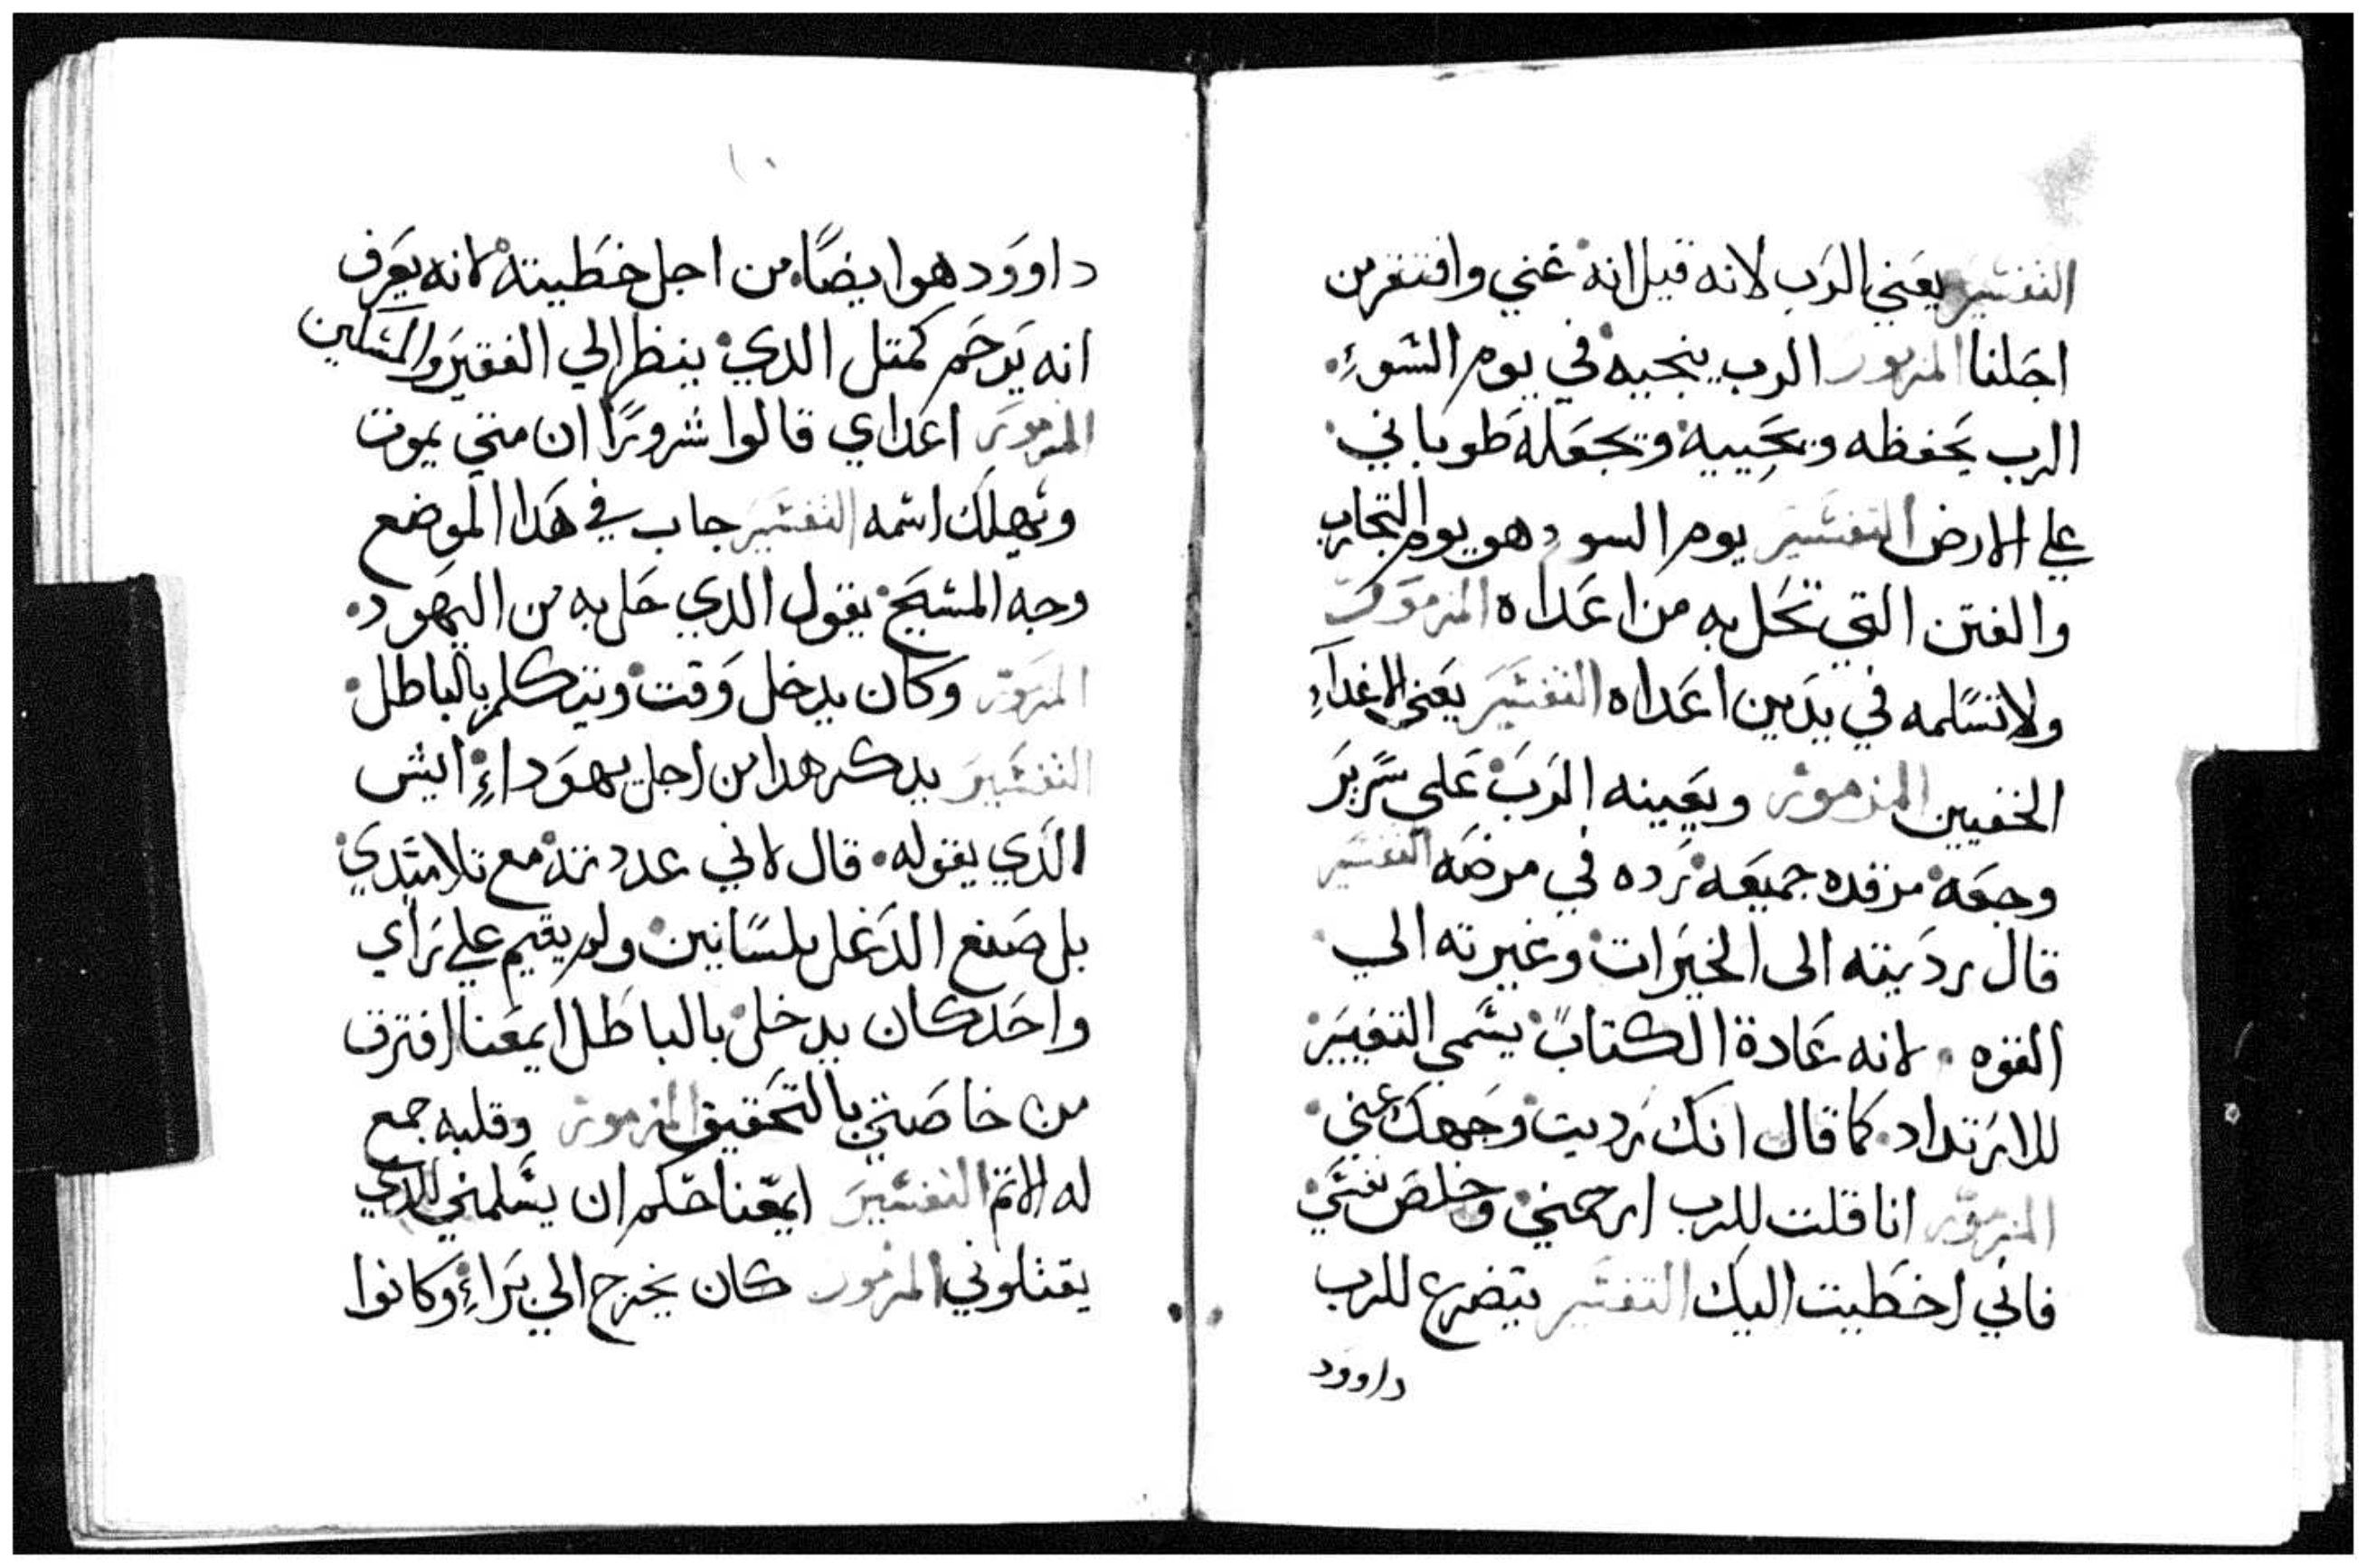 التفسير يعني الرب لانه قيل انه غني وافتقر من
اجلنا المزمور الرب ينجيه في يوم السوء
الرب يحفظه ويحييه ويجعله طوباني
علي الارض التفسير يوم السو هو يوم التجارب
والفتن التي تحل به من اعداه المزمور
ولا تسلمه في يدين اعداه التفسير يعني الاعداء
الخفيين المزمور ويعينه الرب على سرير
وجعه مرقده جميعه رده في مرضه التفسير
قال رديته الى الخيرات وغيرته الي
القوه لانه عادة الكتاب يسمي التغيير
للارتداد كما قال انك رديت وجهك عني
المزمور انا قلت للرب ارحمني وخلص نفسي
فاني اخطيت اليك التفسير يتضرع للرب
داوود
١٠
داوود هو ايضا من اجل خطيته لانه يعرف
انه يرحم كمتل الدي ينظر الي الفقير والمسكين
المزمور اعداي قالوا شرورا ان متي يموت
ويهلك اسمه التفسير جاب في هدا الموضع
وجه المسيح يقول الدي حل به من اليهود
المزمور وكان يدخل وقت ويتكلم بالباطل
التفسير يدكر هدا من اجل يهوداء ايش
الدي يقوله قال لاني عددته مع تلاميدي
بل صنع الدغل بلسانين ولم يقيم علي راي
واحد كان يدخل بالباطل ايمعنا افترق
من خاصتي بالتحقيق المزمور وقلبه جمع
له الاتم التفسير ايمعنا حكم ان يسلمني للدي
يقتلوني المزمور كان يخرج الي براء وكانوا